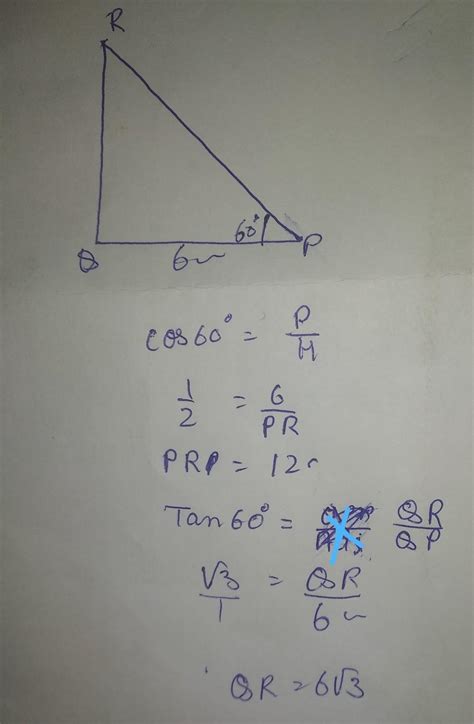 R
60°
Q
6m
P
cos60° = P/H
1/2 = 6/PR
PR = 12
Tan60° = QR/QP
√3/1 = QR/6m
QR = 6√3